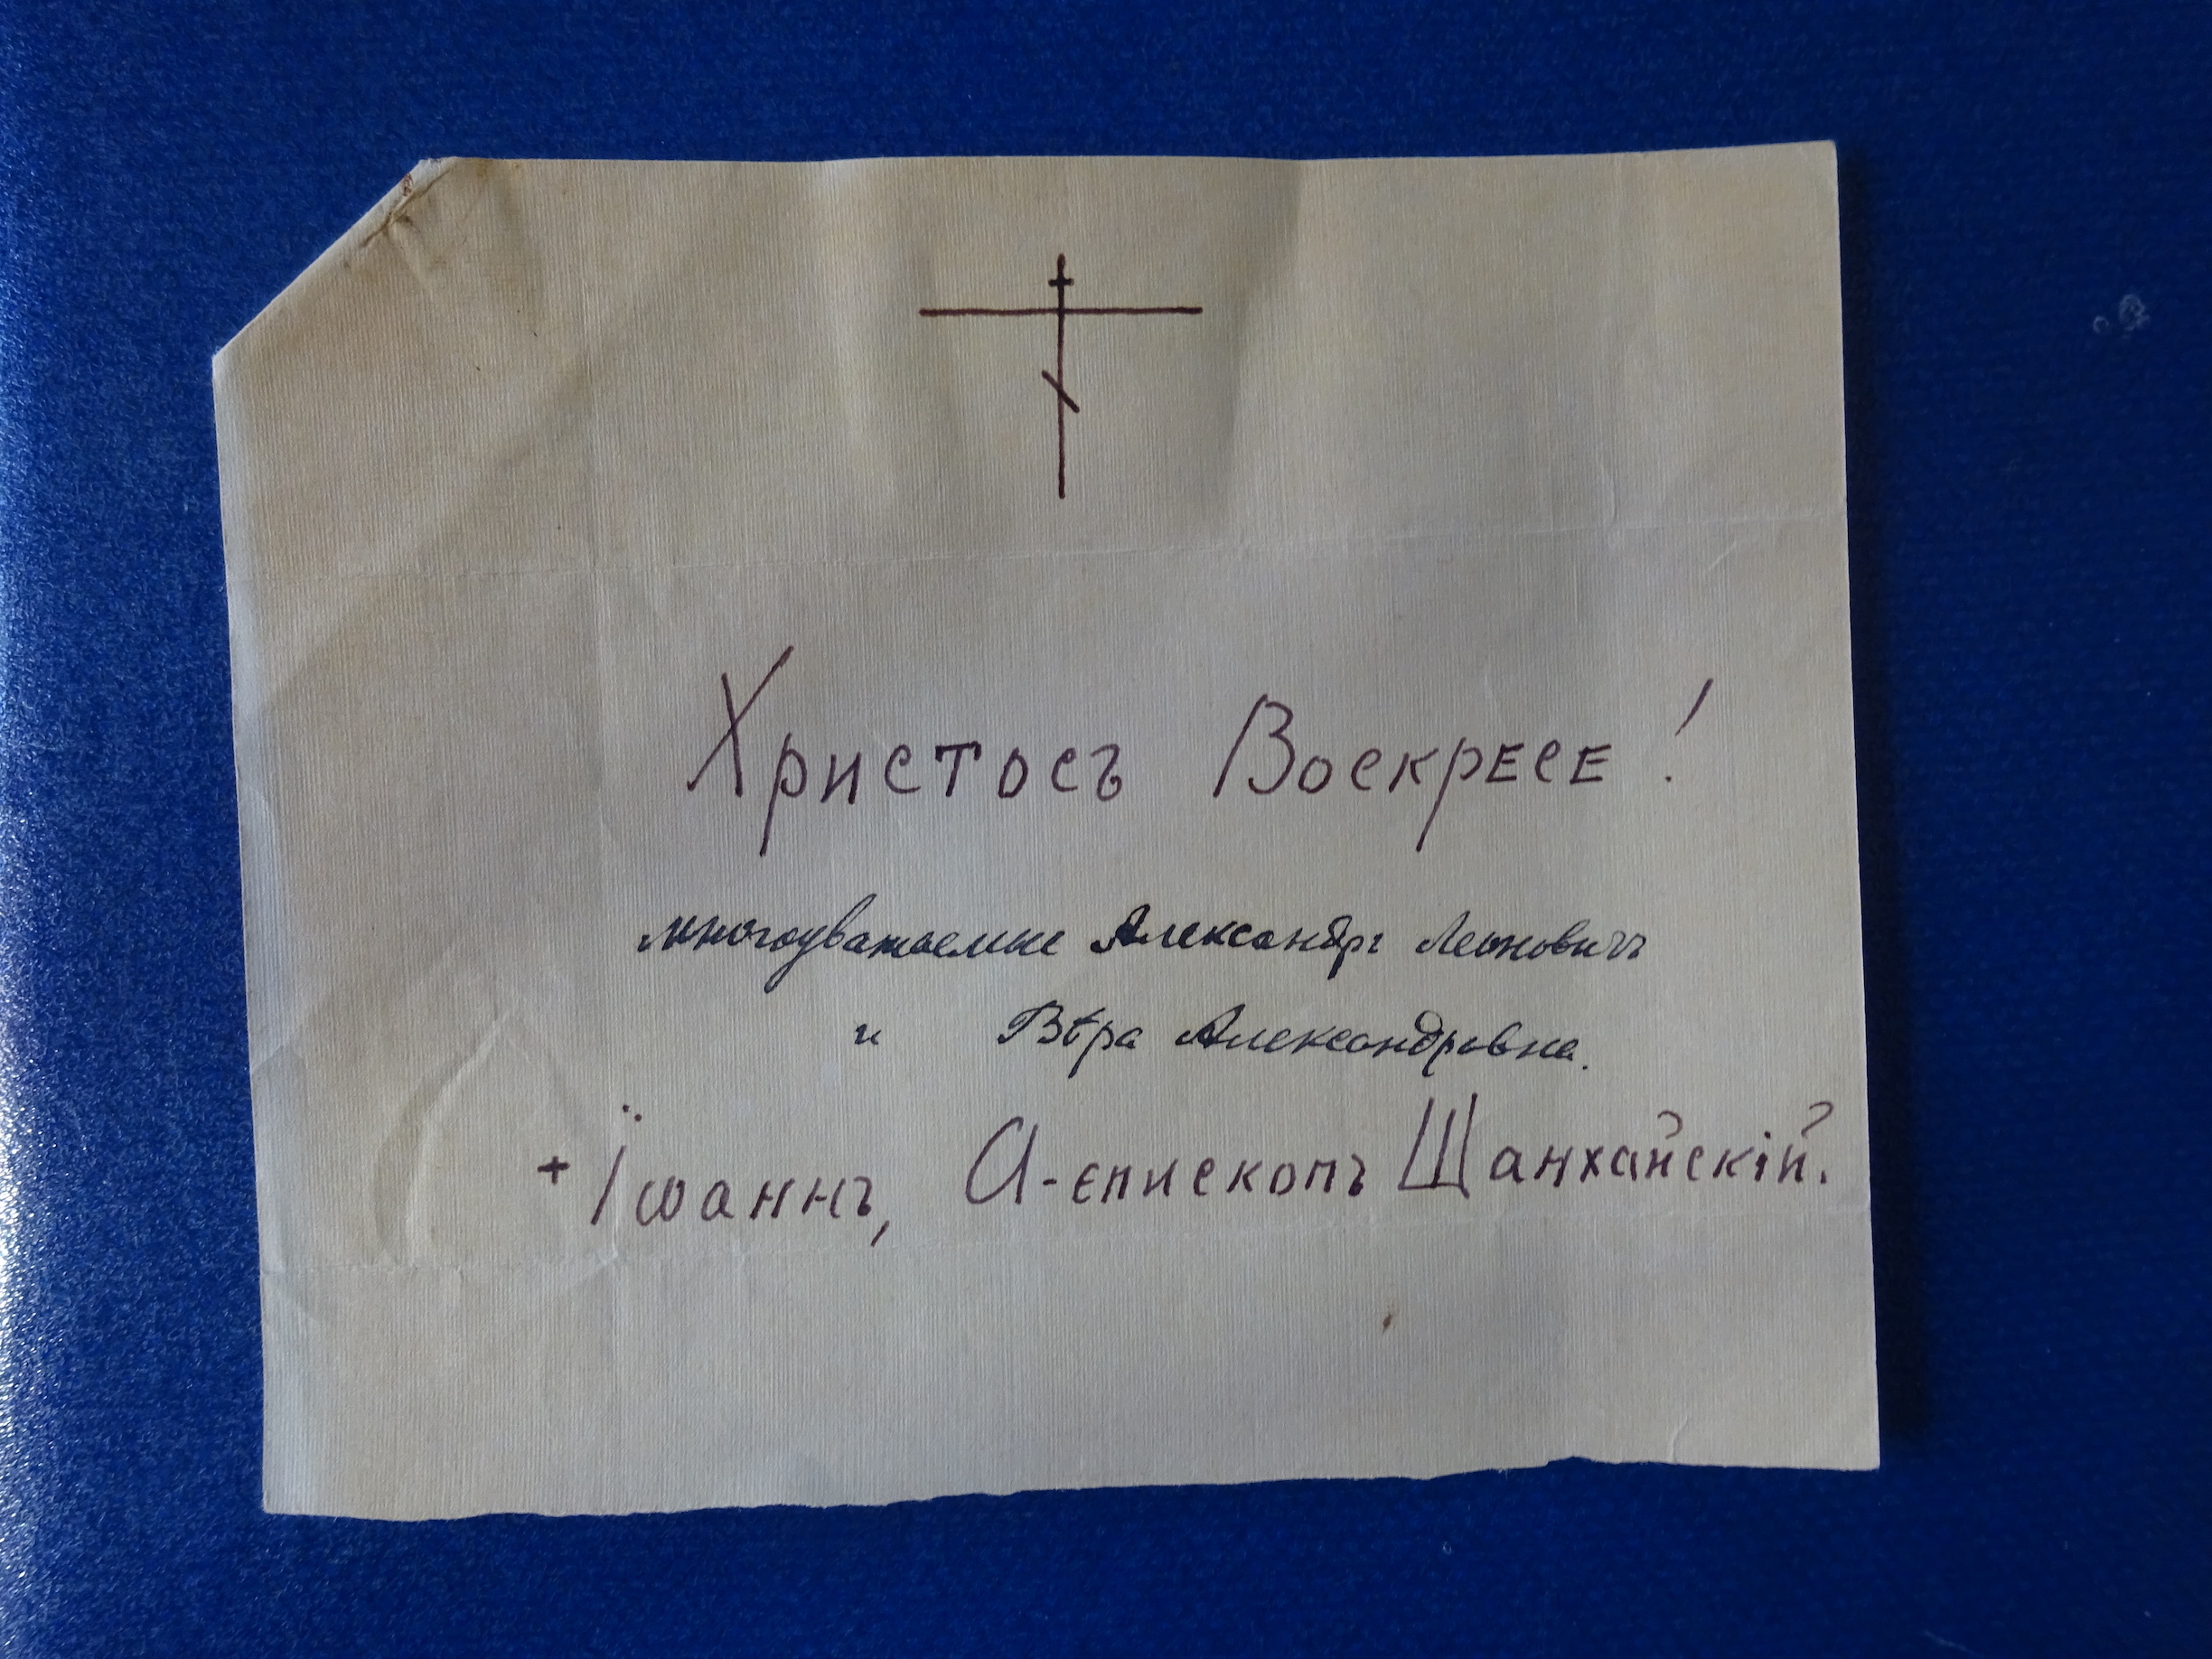 Христосъ Воскресе!
многоуважаемые Александръ Леоновичъ
и Вѣра Александровна.
+ Їѡаннъ, А-єпископъ Шанхайскій.